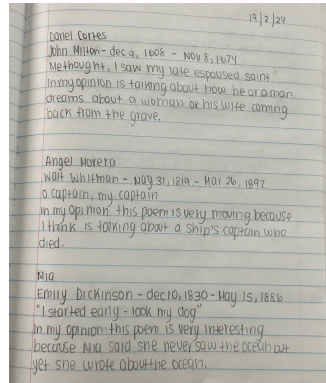 19/2/24
Danel Cortes
John Milton - dec 9, 1608 - Nov 8, 1674
Methought, I saw my late espoused saint
In my opinion is talking about how he or a man
dreams about a woman or his wife coming
back from the grave.
Angel Morera
Walt Whitman - May 31, 1819 - Mar 26, 1892
O captain, my captain
in my opinion this poem is very moving because
I think is talking about a ship's captain who
died.
Mia
Emily Dickinson - dec 10, 1830 - May 15, 1886
"I started early - took my dog"
In my opinion this poem is very interesting
because Mia said she never saw the ocean but
yet she wrote about the ocean.